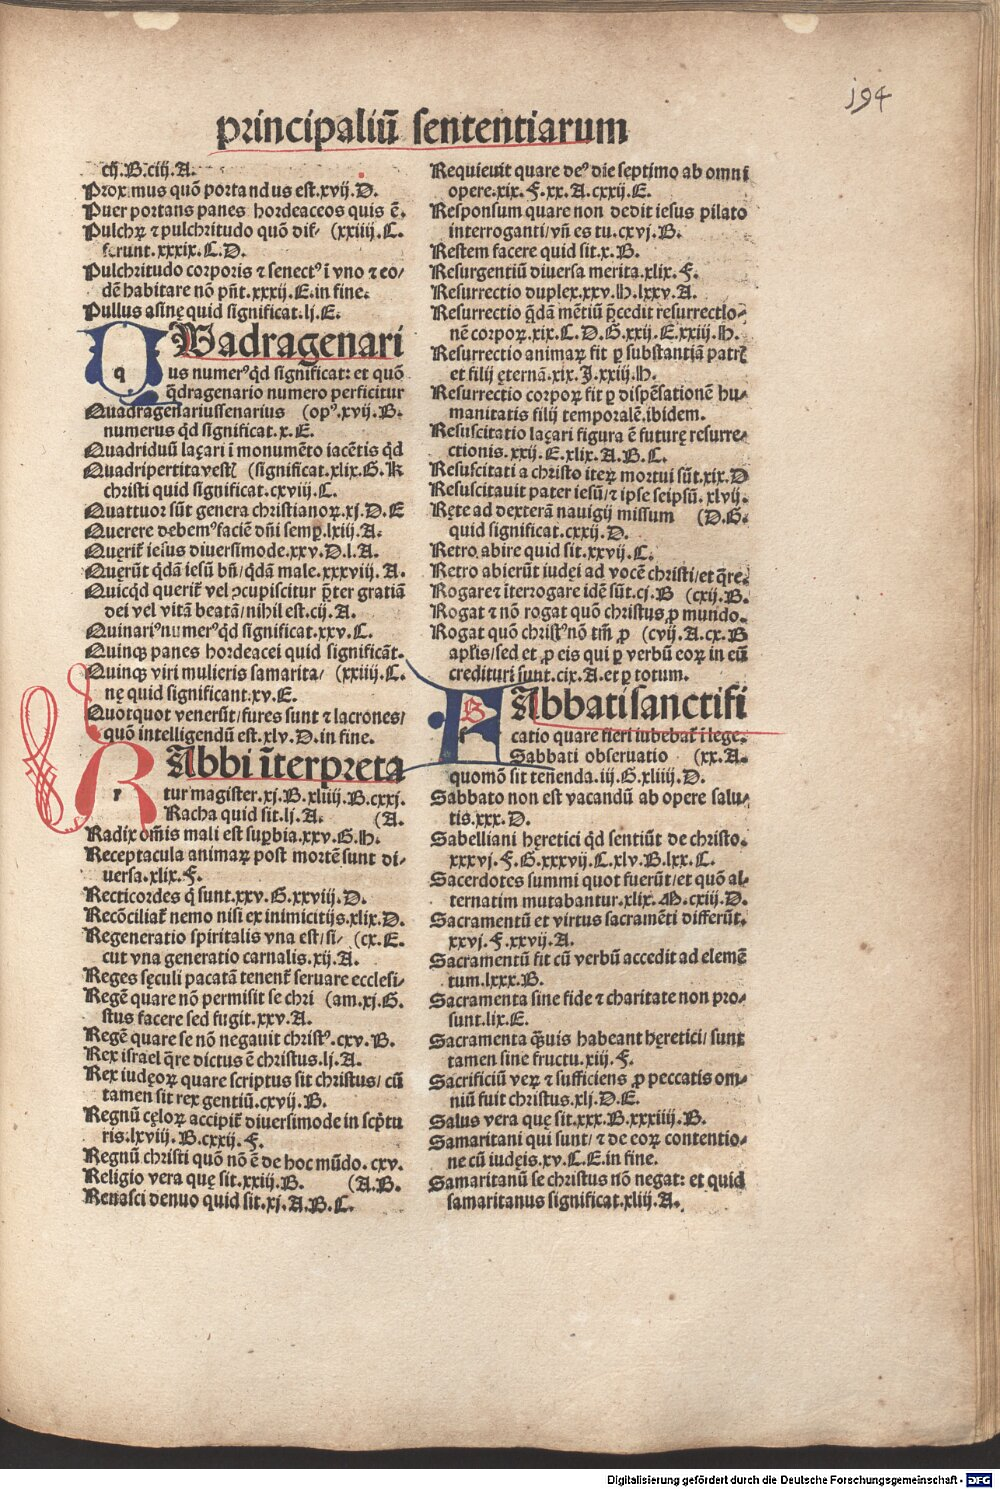 194
principaliū sententiarum
ch.B.ciij.A.
Proximus quō portandus est.xvij.D.
Puer portans panes hordeaceos quis ē.
Pulchꝝ ⁊ pulchritudo quō dif- (xxiiij.C.
ferunt.xxxix.C.D.
Pulchritudo corporis ⁊ senectꝰ ī vno ⁊ eo/
dē habitare nō pn̄t.xxxij.E.in fine.
Pullus asinę quid significat.lj.E.
QVadragenari
q us numerꝰ qd significat: et quō
q̄dragenario numero perficitur
Quadragenariussenarius (opꝰ.xvij.B.
numerus qd significat.x.E.
Quadriduū laçari ī monumēto iacētis qd
Quadripertita vestꝭ (significat.xlix.G.K
christi quid significat.cxviij.C.
Quattuor sūt genera christianoꝝ.xj.D.E
Querere debemꝰ faciē dn̄i semꝑ.lxiij.A.
Quęrit̄ iesus diuersimode.xxv.D.l.A.
Quęrūt qdā iesū bn̄/qdā male.xxxviij.A.
Quicqd querit̄ vel ꝯcupiscitur p̄ter gratiā
dei vel vitā beatā/nihil est.cij.A.
Quinariꝰ numerꝰ qd significat.xxv.C.
Quinqꝫ panes hordeacei quid significāt.
Quinqꝫ viri mulieris samarita/ (xxiiij.C.
nę quid significant.xv.E.
Quotquot venerūt/fures sunt ⁊ lacrones/
quō intelligendū est.xlv.D.in fine.
RAbbi īterpreta
r tur magister.xj.B.xliiij.B.cxxj.
Racha quid sit.lj.A. (A.
Radix om̄is mali est suꝑbia.xxv.G.H.
Receptacula animaꝝ post mortē sunt di/
uersa.xlix.F.
Recticordes q̄ sunt.xxv.G.xxviij.D.
Recōciliat̄ nemo nisi ex inimicitijs.xlix.D.
Regeneratio spiritalis vna est/si/ (cx.E.
cut vna generatio carnalis.xij.A.
Reges sęculi pacatā tenent̄ seruare ecclesi/
Regē quare nō permisit se chri (am.xj.G.
stus facere sed fugit.xxv.A.
Regē quare se nō negauit christꝰ.cxv.B.
Rex israel q̄re dictus ē christus.lj.A.
Rex iudęoꝝ quare scriptus sit christus/ cū
tamen sit rex gentiū.cxvij.B.
Regnū cęloꝝ accipit̄ diuersimode in scp̄tu
ris.lxviij.B.cxxij.F.
Regnū christi quō nō ē de hoc mūdo. cxv.
Religio vera quę sit.xxiij.B. (A.B.
Renasci denuo quid sit.xj.A.B.C.
Requieuit quare deꝰ die septimo ab omni
opere.xix.F.xx.A.cxxij.E.
Responsum quare non dedit iesus pilato
interroganti/vn̄ es tu.cxvj.B.
Restem facere quid sit.x.B.
Resurgentiū diuersa merita.xlix.F.
Resurrectio duplex.xxv.H.lxxv.A.
Resurrectio q̄dā mētiū p̄cedit resurrectio-
nē corpoꝝ.xix.C.D.G.xxij.E.xxiij.H.
Resurrectio animaꝝ fit ꝑ substantiā patrꝭ
et filij ęternā.xix.J.xxiij.H.
Resurrectio corpoꝝ fit ꝑ dispēsationē hu/
manitatis filij temporalē.ibidem.
Resuscitatio laçari figura ē futurę resurre/
ctionis.xxij.E.xlix.A.B.C.
Resuscitati a christo iteꝝ mortui sūt.xix.D
Resuscitauit pater iesū/⁊ ipse seipsū. xlvij.
Ręte ad dexterā nauigij missum (D.G.
quid significat.cxxij.D.
Retro abire quid sit.xxvij.C.
Retro abierūt iudęi ad vocē christi/et q̄re.
Rogare ⁊ īterrogare idē sūt.cj.B (cxij.B.
Rogat ⁊ nō rogat quō christus ꝓ mundo.
Rogat quō christꝰ nō tm̄ ꝓ (cvij.A.cx.B
apl̄is/sed et ꝓ eis qui ꝑ verbū eoꝝ in eū
credituri sunt.cix.A.et ꝑ totum.
SAbbati sanctifi
catio quare fieri iubebat̄ ī lege.
Sabbati obseruatio (xx.A.
quomō sit tenēda.iij.G.xliiij.D.
Sabbato non est vacandū ab opere salu/
tis.xxx.D.
Sabelliani hęretici qd sentiūt de christo.
xxxvj.F.G.xxxvij.C.xlv.B.lxx.C.
Sacerdotes summi quot fuerūt/et quō al-
ternatim mutabantur.xlix.N.cxiij.D.
Sacramentū et virtus sacramēti differūt.
xxvj.F.xxvij.A.
Sacramentū fit cū verbū accedit ad elemē
tum.lxxx.B.
Sacramenta sine fide ⁊ charitate non pro/
sunt.lix.E.
Sacramenta q̄uis habeant hęretici/ sunt
tamen sine fructu.xiij.F.
Sacrificiū veꝝ ⁊ sufficiens ꝓ peccatis om/
niū fuit christus.xlj.D.E.
Salus vera quę sit.xxx.B.xxxiiij.B.
Samaritani qui sunt/ ⁊ de eoꝝ contentio/
ne cū iudęis.xv.C.E.in fine.
Samaritanū se christus nō negat: et quid
samaritanus significat.xliij.A.
Digitalisierung gefördert durch die Deutsche Forschungsgemeinschaft - DFG